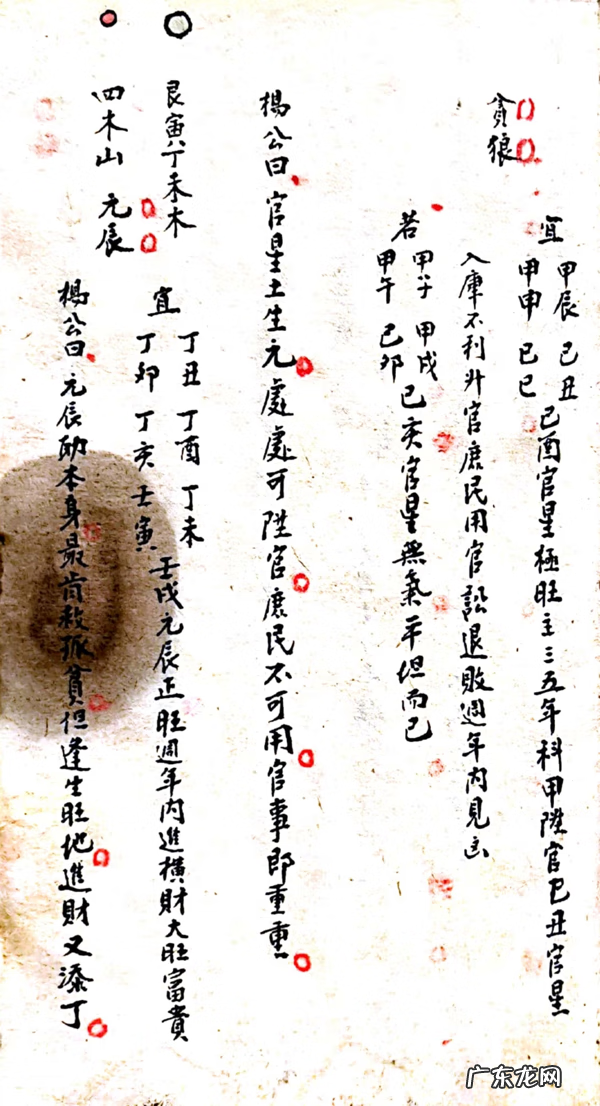 貪狼
宜 甲辰 己丑
甲申 己巳 己酉官星極旺主三五年科甲陞官己丑官星
入庫不利升官庶民用官訟退敗週年內見凶
若 甲子 甲戌
甲午 己卯 己亥官星無氣平坦而已
楊公曰官星土生元處處可陞官庶民不可用官事即重重
艮寅癸丁未木
四木山 元辰
宜 丁丑 丁酉 丁未
丁卯 丁亥 壬寅 壬戌元辰正旺週年內進橫財大旺富貴
楊公曰元辰助本身最肯救孤貧但逢生旺地進財又添丁
广东龙网